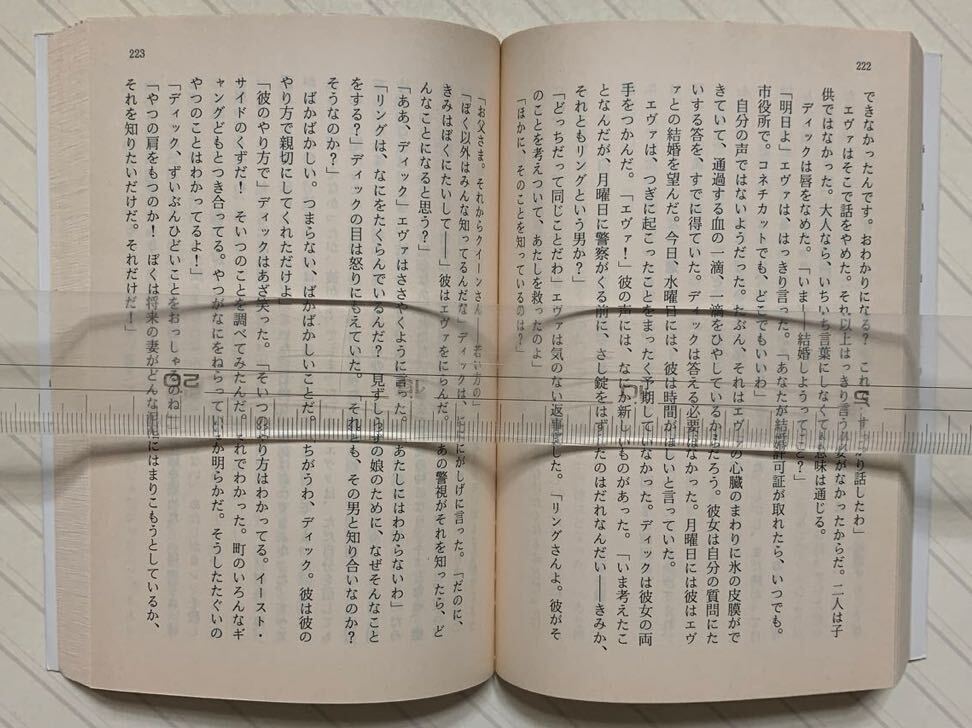 222
できなかったんです。おわかりになる? これで、すっかり話したわ」
エヴァはそこで話をやめた。それ以上はっきり言う必要がなかったからだ。二人は子
供ではなかった。大人なら、いちいち言葉にしなくても意味は通じる。
ディックは唇をなめた。「いま——結婚しようってこと?」
「明日よ」エヴァは、はっきり言った。「あなたが結婚許可証が取れたら、いつでも。
市役所で。コネチカットでも、どこでもいいわ」
自分の声ではないようだった。たぶん、それはエヴァの心臓のまわりに氷の皮膜がで
きていて、通過する血の一滴、一滴をひやしているからだろう。彼女は自分の質問にた
いする答を、すでに得ていた。ディックは答える必要はなかった。月曜日には彼はエヴ
ァとの結婚を望んだ。今日、水曜日には、彼は時間がほしいと言っていた。
エヴァは、つぎに起こったことをまったく予期していなかった。ディックは彼女の両
手をつかんだ。「エヴァ!」彼の声には、なにか新しいものがあった。「いま考えたこ
となんだが、月曜日に警察がくる前に、さし錠をはずしたのはだれなんだい——きみか、
それともリングという男か?」
「どっちだって同じことだわ」エヴァは気のない返事をした。「リングさんよ。彼がそ
のことを考えついて、あたしを救ったのよ」
「ほかに、そのことを知っているのは?」
223
「お父さま。それからクイーンさん——若い方の」
「ぼく以外はみんな知ってるんだな」ディックは、にがにがしげに言った。「だのに、
きみはぼくにたいして——」彼はエヴァをにらんだ。「あの警視がそれを知ったら、ど
んなことになると思う?」
「ああ、ディック」エヴァはささやくように言った。「あたしにはわからないわ」
「リングは、なにをたくらんでいるんだ? 見ずしらずの娘のために、なぜそんなこと
をする?」ディックの目は怒りにもえていた。「それとも、その男と知り合いなのか?
そうなのか?」
ばかばかしい。つまらない、ばかばかしいことだ。「ちがうわ、ディック。彼は彼の
やり方で親切にしてくれただけよ」
「彼のやり方で」ディックはあざ笑った。「そいつのやり方はわかってる。イースト・
サイドのくずだ! そいつのことを調べてみたんだ。それでわかった。町のいろんなギ
ャングどもとつき合ってる。やつがなにをねらっているか明らかだ。そうしたたぐいの
やつのことはわかってるよ!」
「ディック、ずいぶんひどいことをおっしゃるのね」
「やつの肩をもつのか! ぼくは将来の妻がどんな にはまりこもうとしているか、
それを知りたいだけだ。それだけだ!」